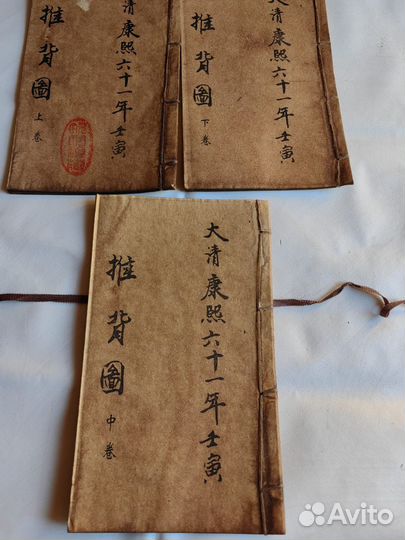 大清康熙六十一年壬寅
推背圖
上卷
大清康熙六十一年壬寅
推背圖
下卷
大清康熙六十一年壬寅
推背圖
中卷
Avito